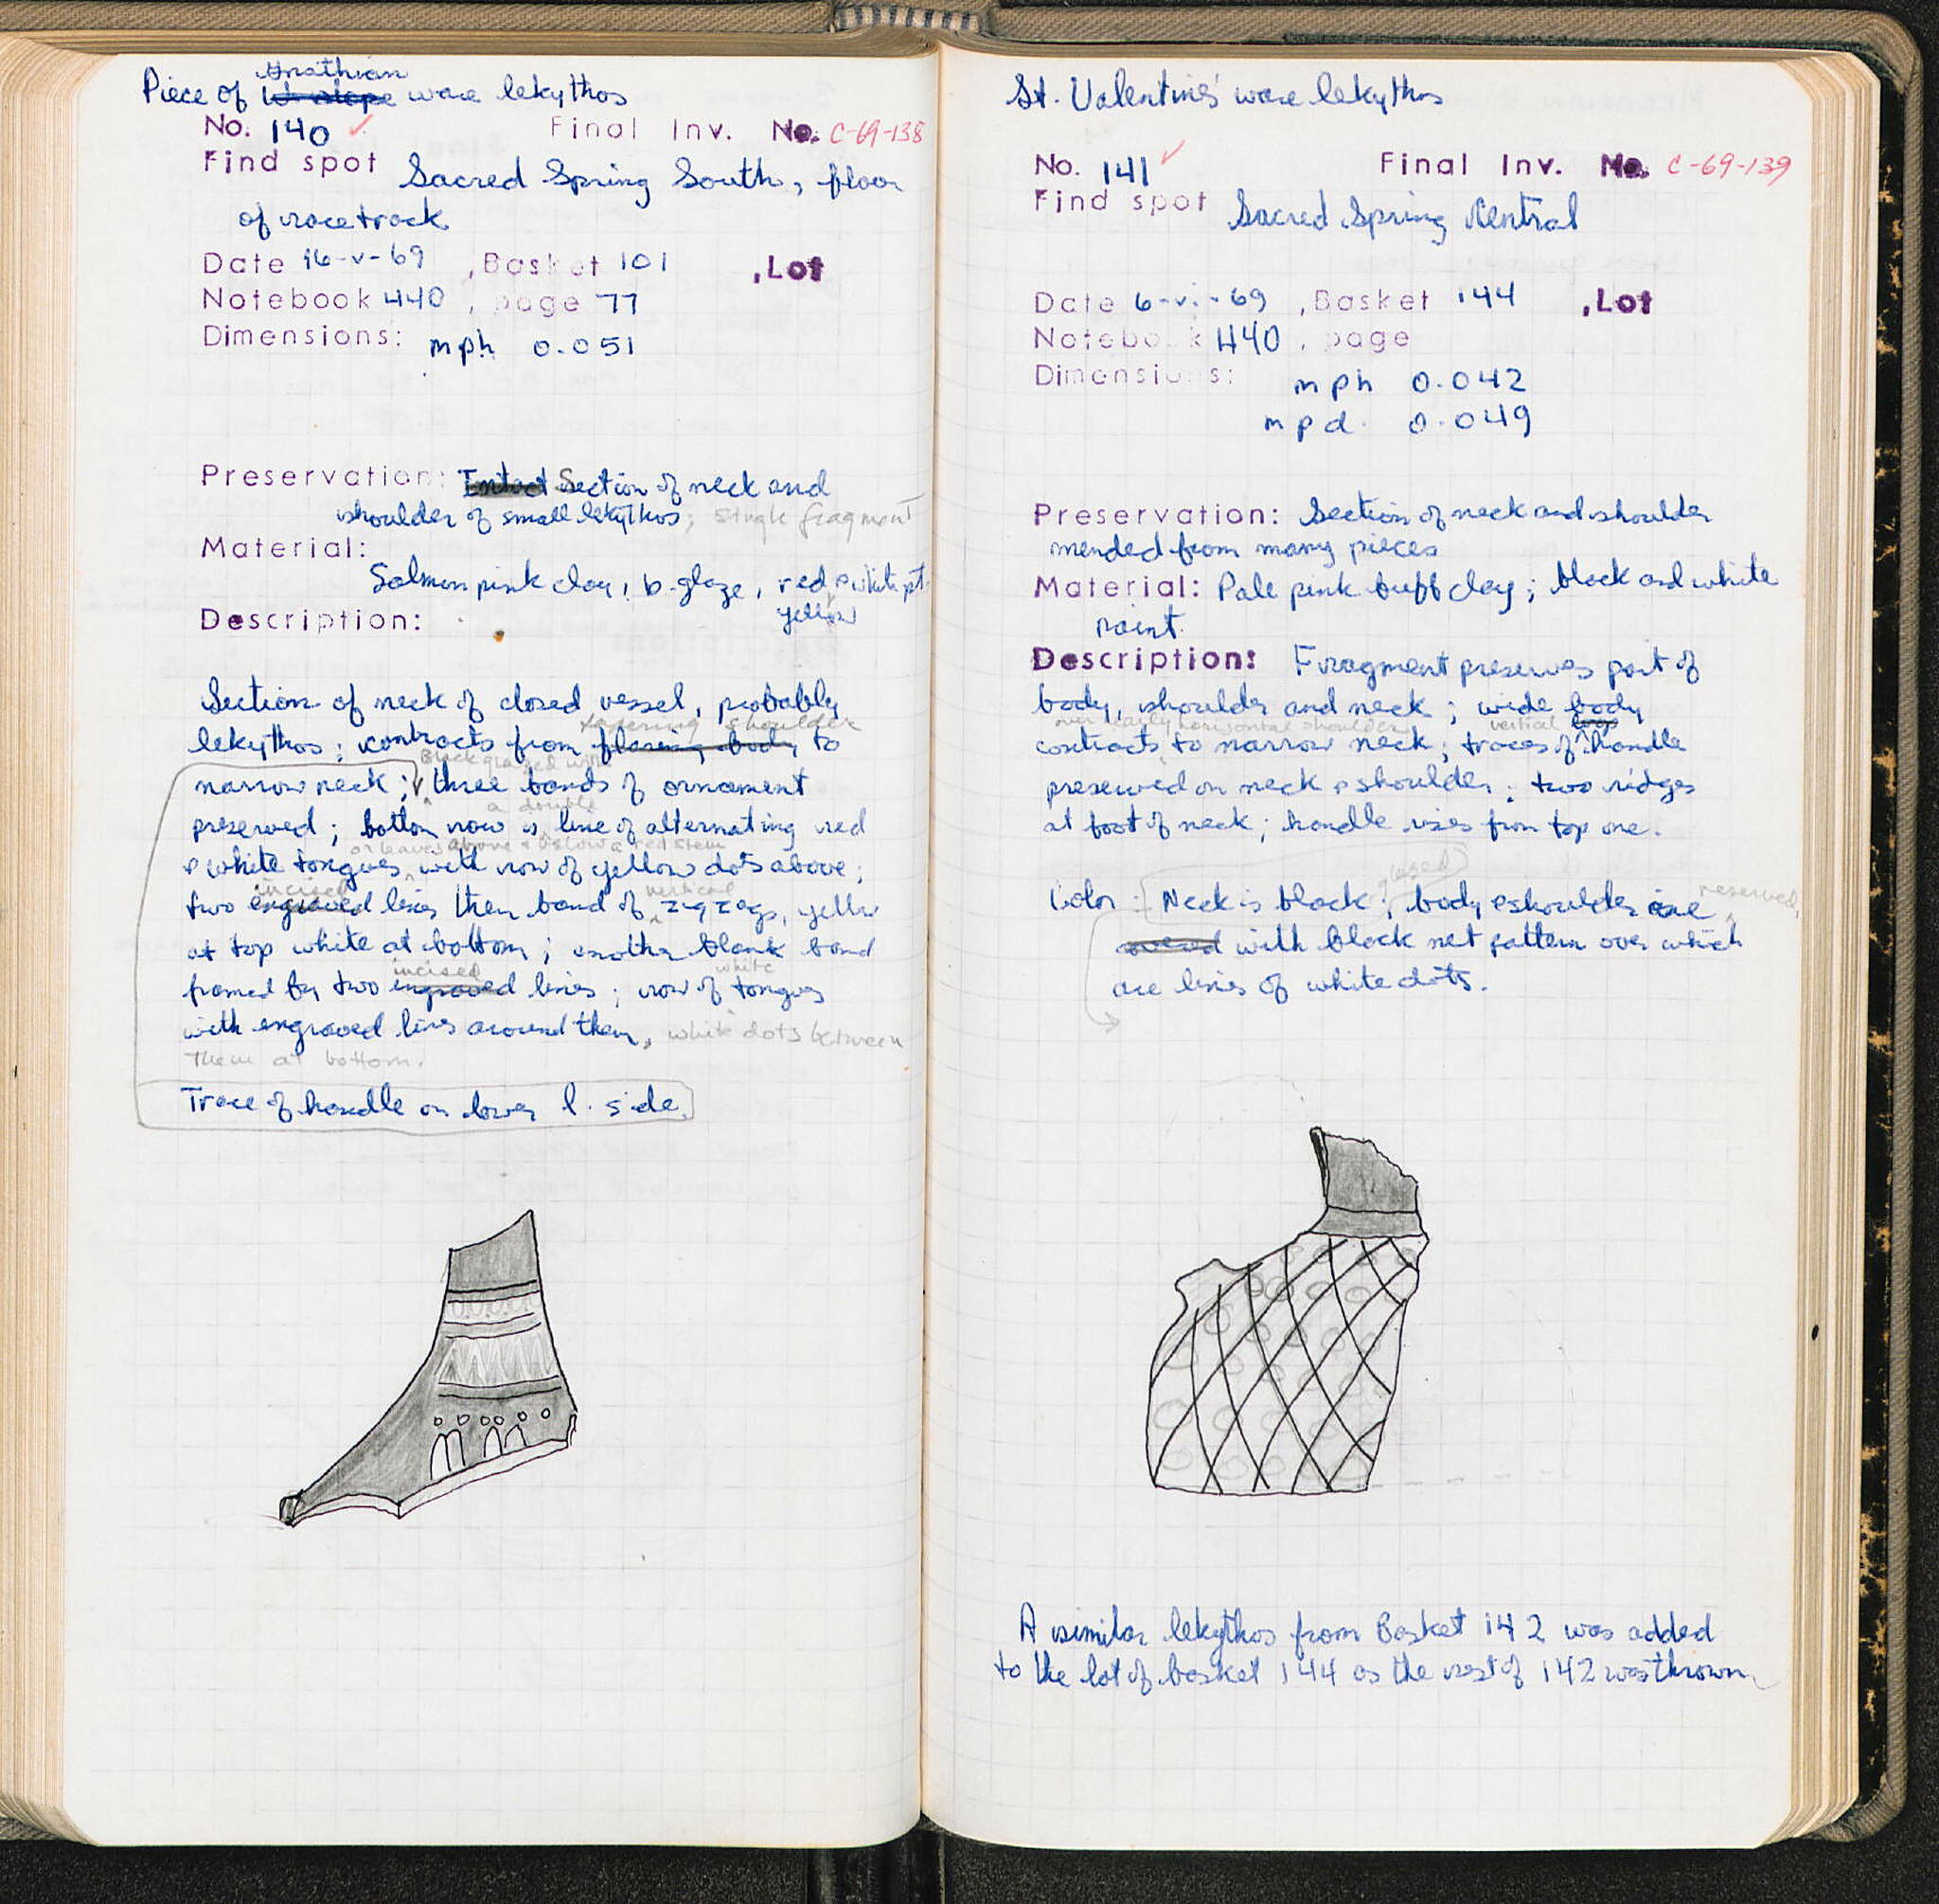 Gnathian
Piece of W. slope ware lekythos
No. 140 ✓ Final Inv. No. C-69-138
Find spot Sacred Spring South, floor
of racetrack
Date 16-v-69 , Basket 101 , Lot
Notebook 440 , page 77
Dimensions: mph 0.051
Preservation: Intact Section of neck and
shoulder of small lekythos; single fragment
Material:
Salmon pink clay, b. glaze, red & white pt.
yellow
Description:
Section of neck of closed vessel, probably
tapering shoulder
lekythos; contracts from flaring body to
Black glazed with
narrow neck; three bands of ornament
a double
preserved; bottom row is line of alternating red
or leaves above & below a red stem
& white tongues with row of yellow dots above;
incised vertical
two engraved lines then band of zigzags, yellow
at top white at bottom; another blank band
incised white
framed by two engraved lines; row of tongues
with engraved lines around them, white dots between
them at bottom.
Trace of handle on lower l. side.
St. Valentine's ware lekythos
No. 141 ✓ Final Inv. No. C-69-139
Find spot Sacred Spring Central
Date 6-vi-69 , Basket 144 , Lot
Notebook 440 , page
Dimensions: mph 0.042
mpd. 0.049
Preservation: Section of neck and shoulder
mended from many pieces
Material: Pale pink buff clay; black and white
paint.
Description: Fragment preserves part of
body, shoulder and neck; wide body
over nearly horizontal shoulder vertical
contracts to narrow neck; traces of handle
preserved on neck & shoulder; two ridges
at foot of neck; handle rises from top one.
glazed
Color: Neck is black; body & shoulder are reserved,
with black net pattern over which
are lines of white dots.
A similar lekythos from Basket 142 was added
to the lot of basket 144 as the rest of 142 was thrown